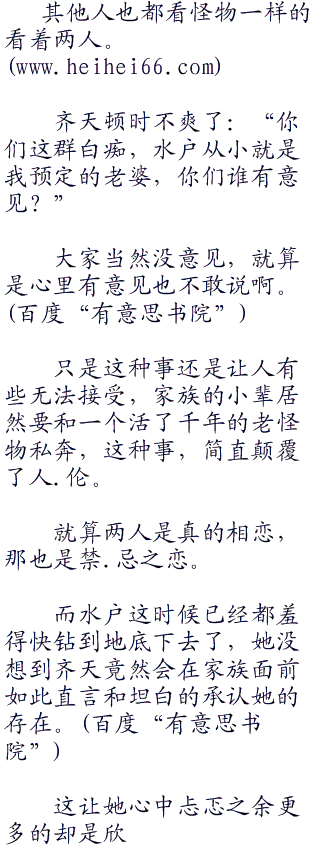 其他人也都看怪物一样的
看着两人。
(www.heihei66.com)
齐天顿时不爽了：“你
们这群白痴，水户从小就是
我预定的老婆，你们谁有意
见？”
大家当然没意见，就算
是心里有意见也不敢说啊。
(百度“有意思书院”)
只是这种事还是让人有
些无法接受，家族的小辈居
然要和一个活了千年的老怪
物私奔，这种事，简直颠覆
了人.伦。
就算两人是真的相恋，
那也是禁.忌之恋。
而水户这时候已经都羞
得快钻到地底下去了，她没
想到齐天竟然会在家族面前
如此直言和坦白的承认她的
存在。(百度“有意思书
院”)
这让她心中忐忑之余更
多的却是欣